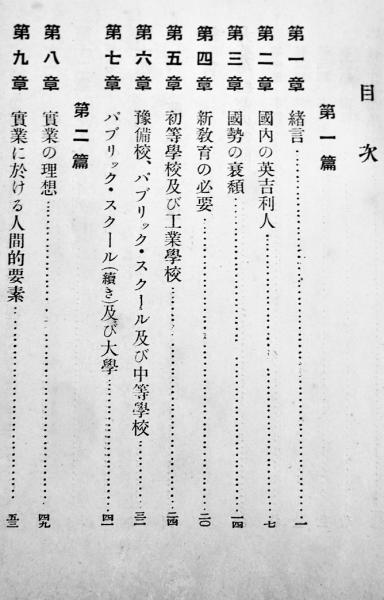 目次
第一篇
第一章 緒言 一
第二章 國內の英吉利人 七
第三章 國勢の衰頽 一四
第四章 新敎育の必要 二〇
第五章 初等學校及び工業學校 二四
第六章 豫備校、パブリック・スクール及び中等學校 三一
第七章 パブリック・スクール(續き)及び大學 四一
第二篇
第八章 實業の理想 四九
第九章 實業に於ける人間的要素 五三